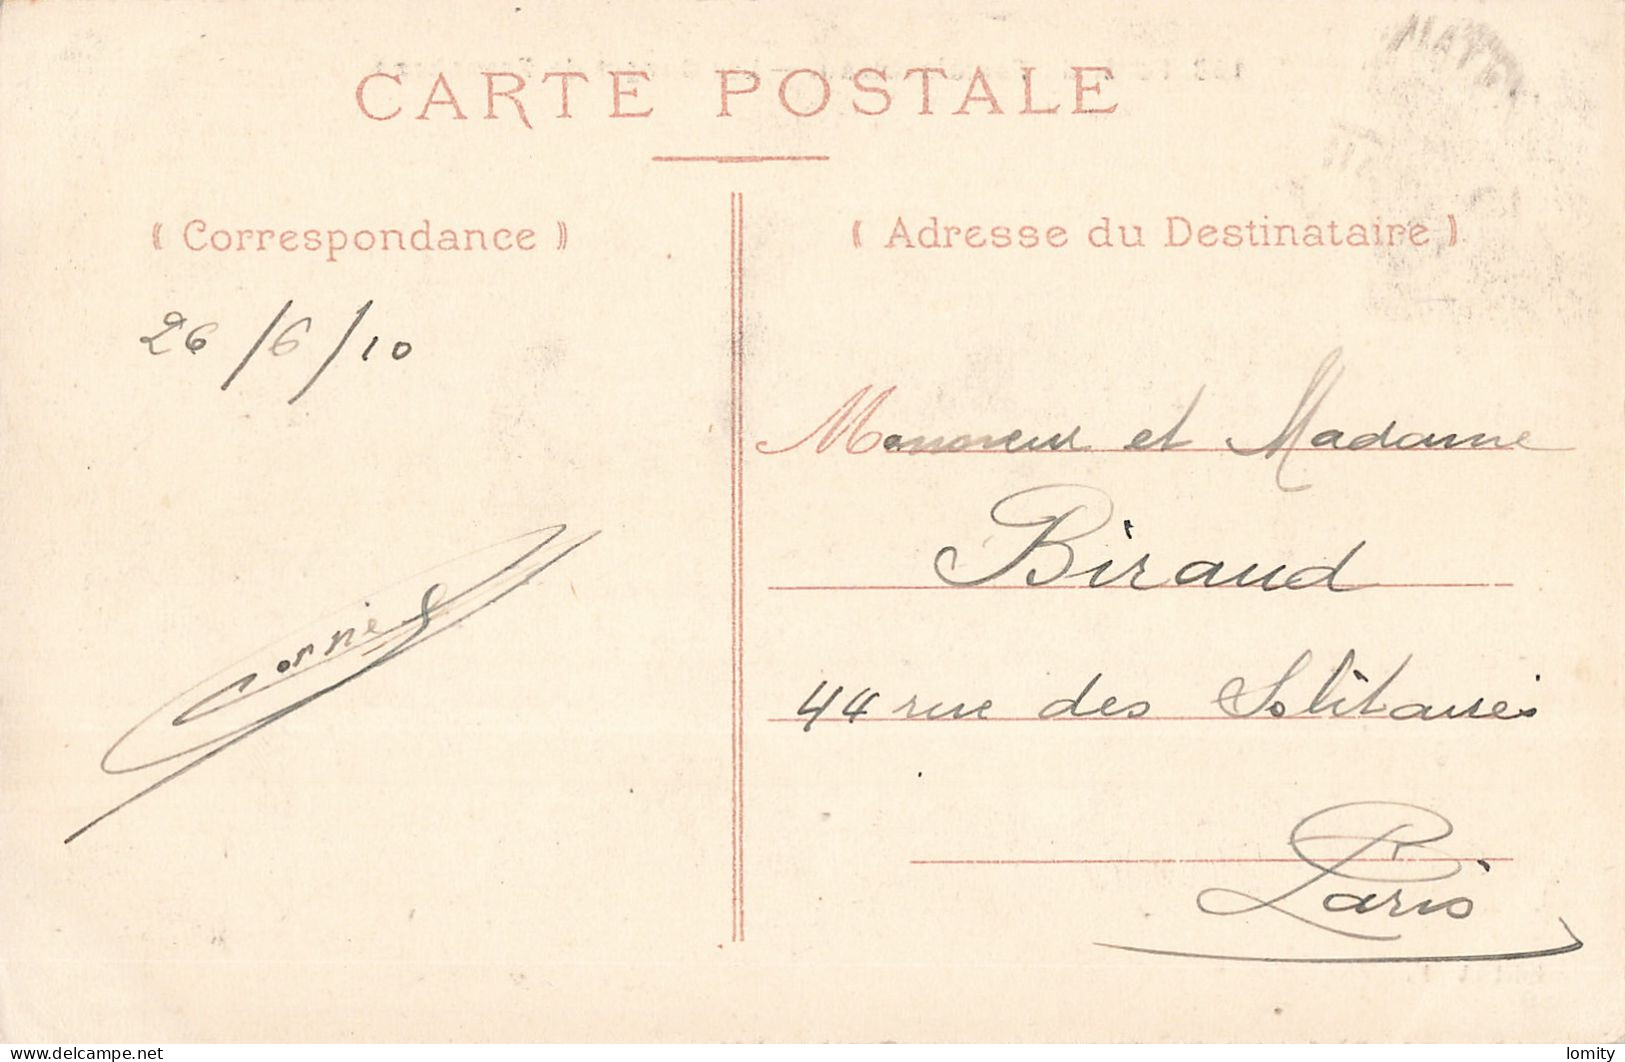 CARTE POSTALE
( Correspondance )
26/6/10
( Adresse du Destinataire )
Monsieur et Madame
Biraud
44 rue des Solitaires
Paris
delcampe.net
lomity